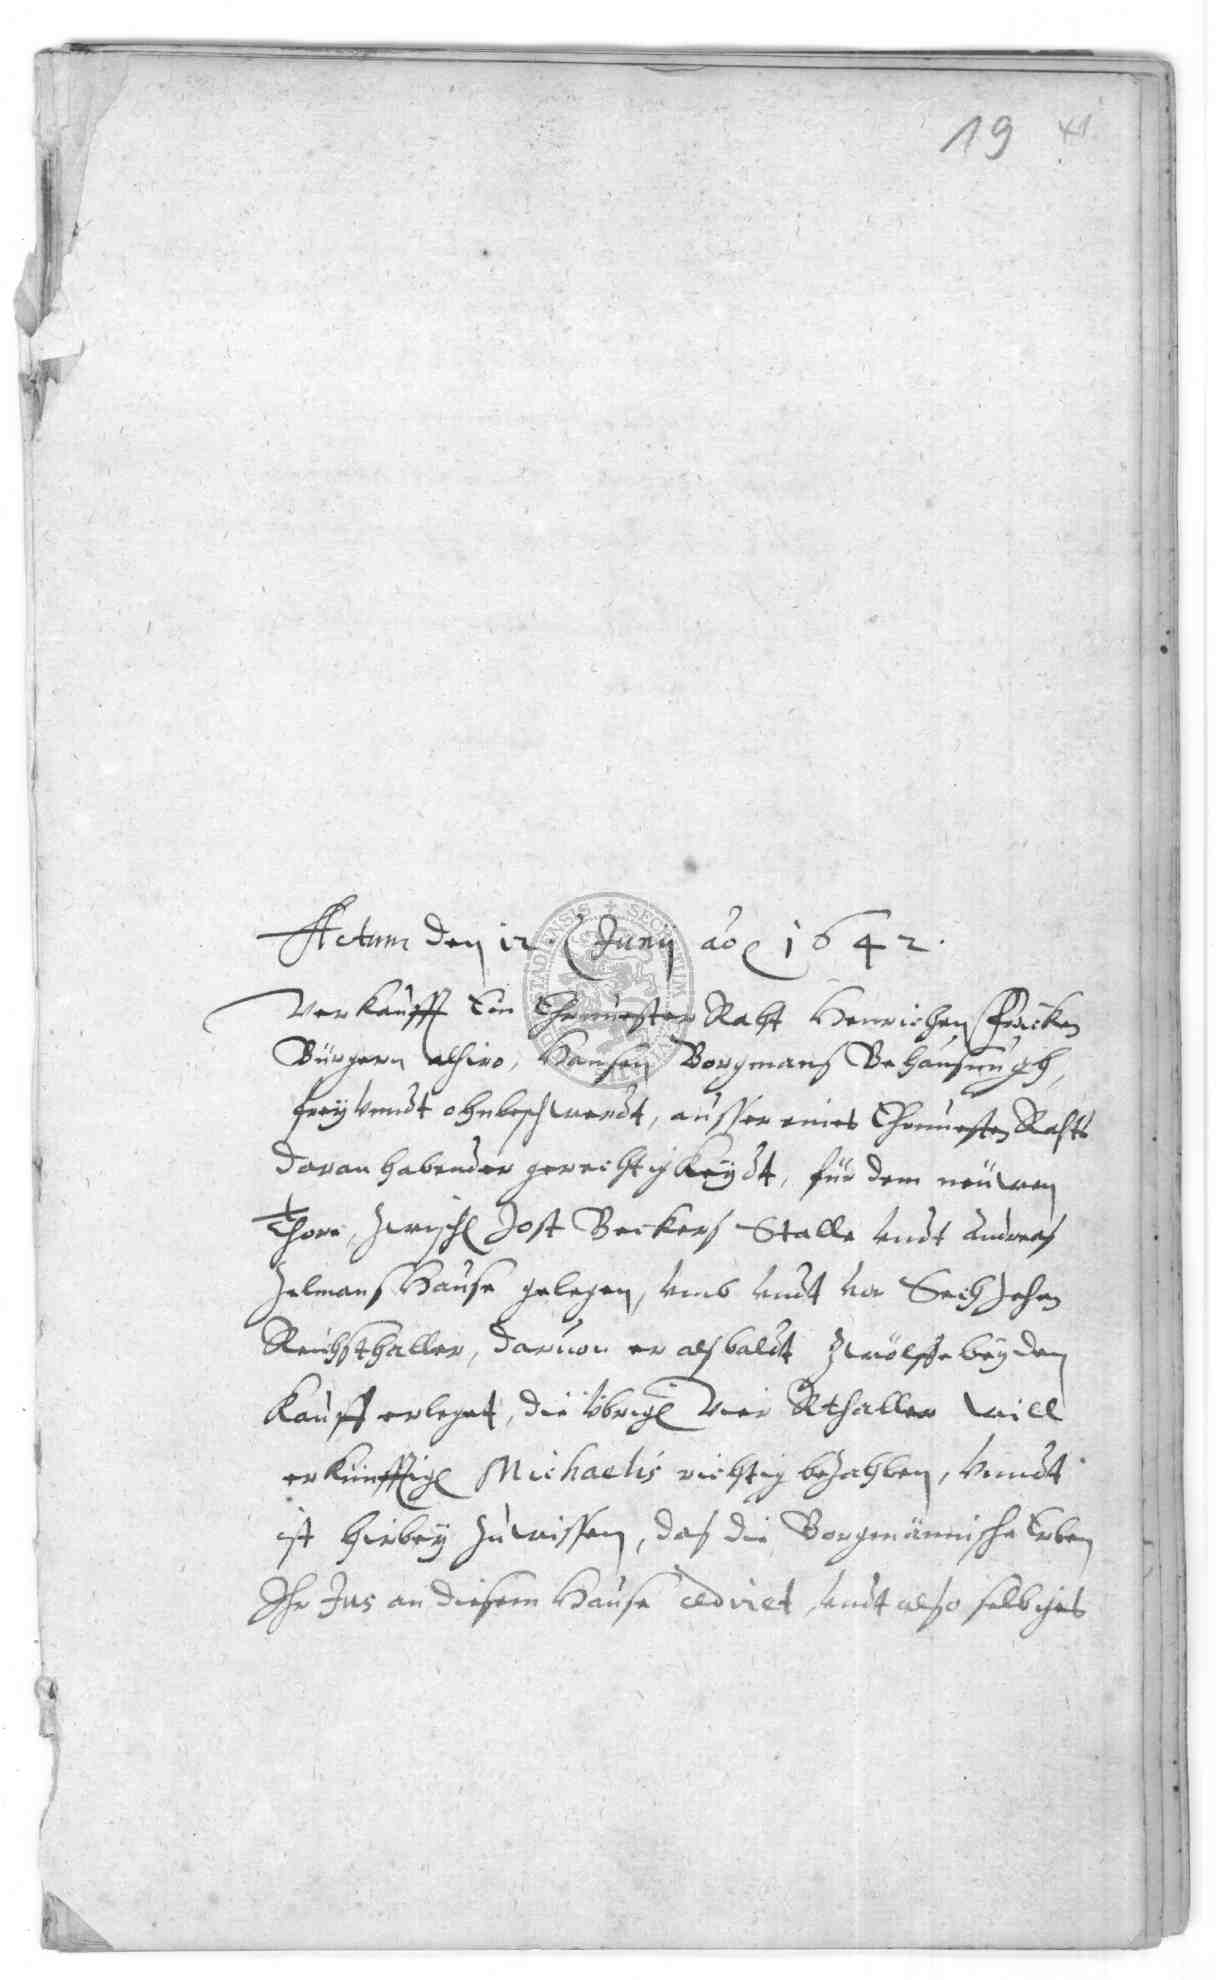 19
Actum den 12. Junij ao 1642.
Verkaufft Ein Ehrnuester Raht Henrichen Fricken
Bürgern alhiro, Hansen Borgmans Behausungh,
frey vnndt ohnbeschwerdt, ausser eines Ehrnuesten Rahts
daran habender gerechtigkeydt, für dem neüwen
Thore, zwischen Jost Beckers Stalle vndt Andreas
Helmans Hause gelegen, vmb vndt vor Sechzehen
Reichsthaller, daruon er alsbaldt zwölffe bey dem
Kauff erleget, die übrigen vier Rthaller will
er künfftigen Michaelis richtig bezahlen, vnndt
ist hirbey zu wissen, das die Borgmännische Erben
Ihr Jus an diesem Hause cediret, vndt also selbiges